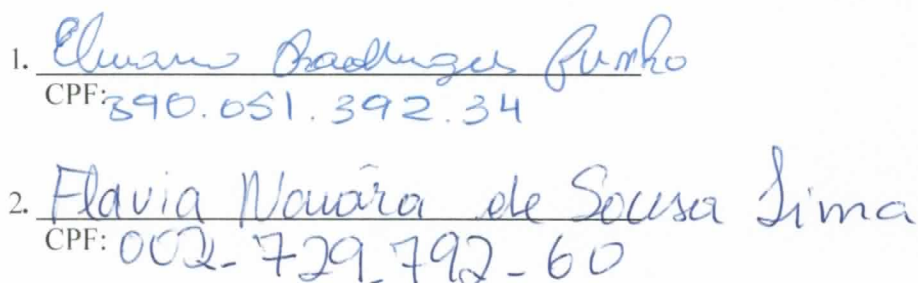 1. Elmano Rodrigues Punho
CPF: 390.051.392.34
2. Flavia Nauára de Sousa Lima
CPF: 002-729.792-60